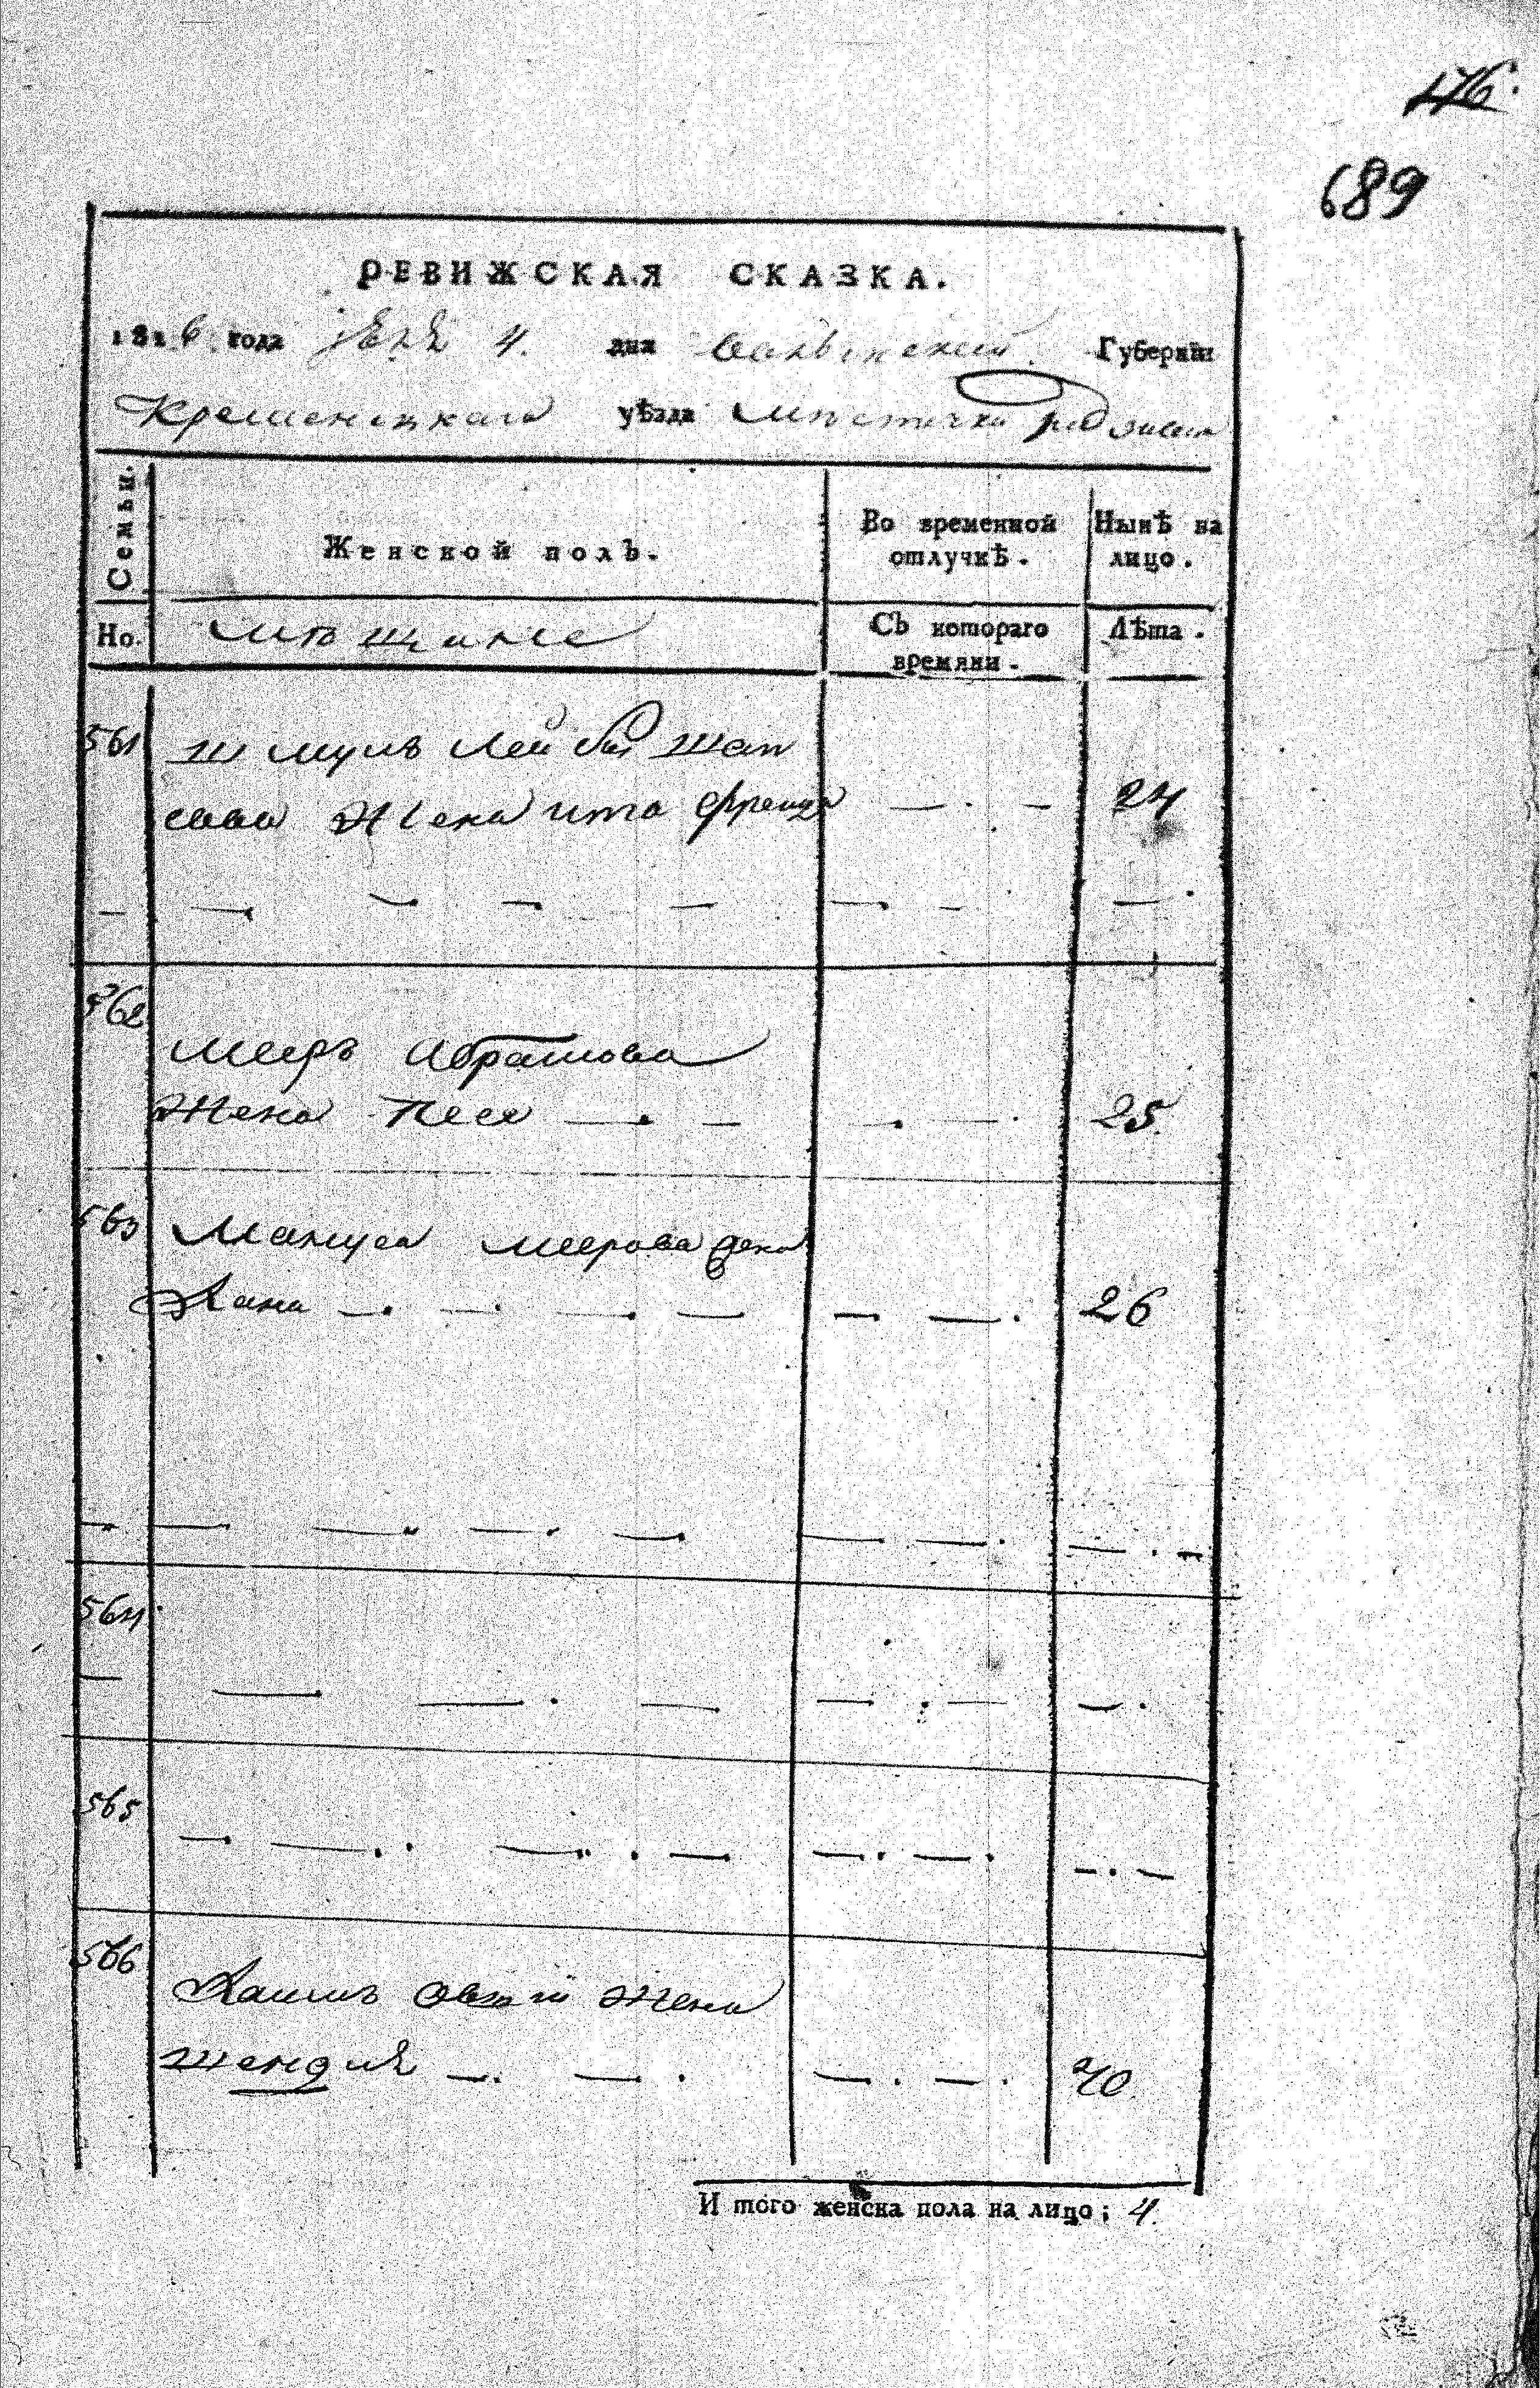 476.
689
РЕВИЖСКАЯ СКАЗКА.
1816 года 4. дня Волынской Губернїи
Кременецкаго уѣзда мѣстечка Радзивил
Семьи.
Женской полъ.
Во временной отлучкѣ.
Нынѣ на лицо.
Но.
мѣщане
Съ котораго времяни.
Лѣта.
561
Шмуль Лейба Шап
сова Жена Ита Френда — . — 24
— — — — — — — —
562
Мееръ Абрамова
Жена Песя — — — — 25.
563 Мануса Меерова Жена
Хана — — — — — — 26
— — — — — — — — —
564
— — — — — — —
565
— — — — — — — —
566
Хаимъ жена
Шендля — — — — 40.
И того женска пола на лицо; 4.